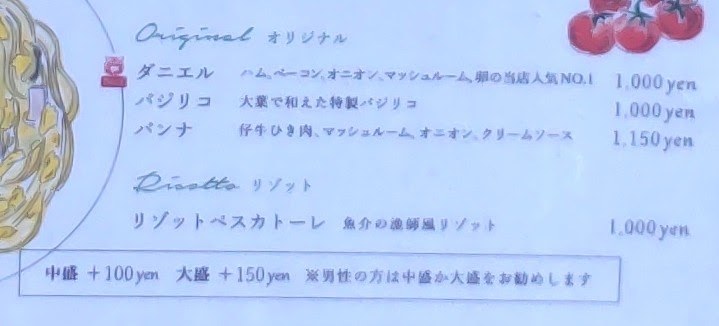 Original オリジナル
ダニエル ハム、ベーコン、オニオン、マッシュルーム、卵の当店人気NO.1 1,000yen
バジリコ 大葉で和えた特製バジリコ 1,000yen
パンナ 仔牛ひき肉、マッシュルーム、オニオン、クリームソース 1,150yen
Risotto リゾット
リゾットペスカトーレ 魚介の漁師風リゾット 1,000yen
中盛 +100yen 大盛 +150yen ※男性の方は中盛か大盛をお勧めします